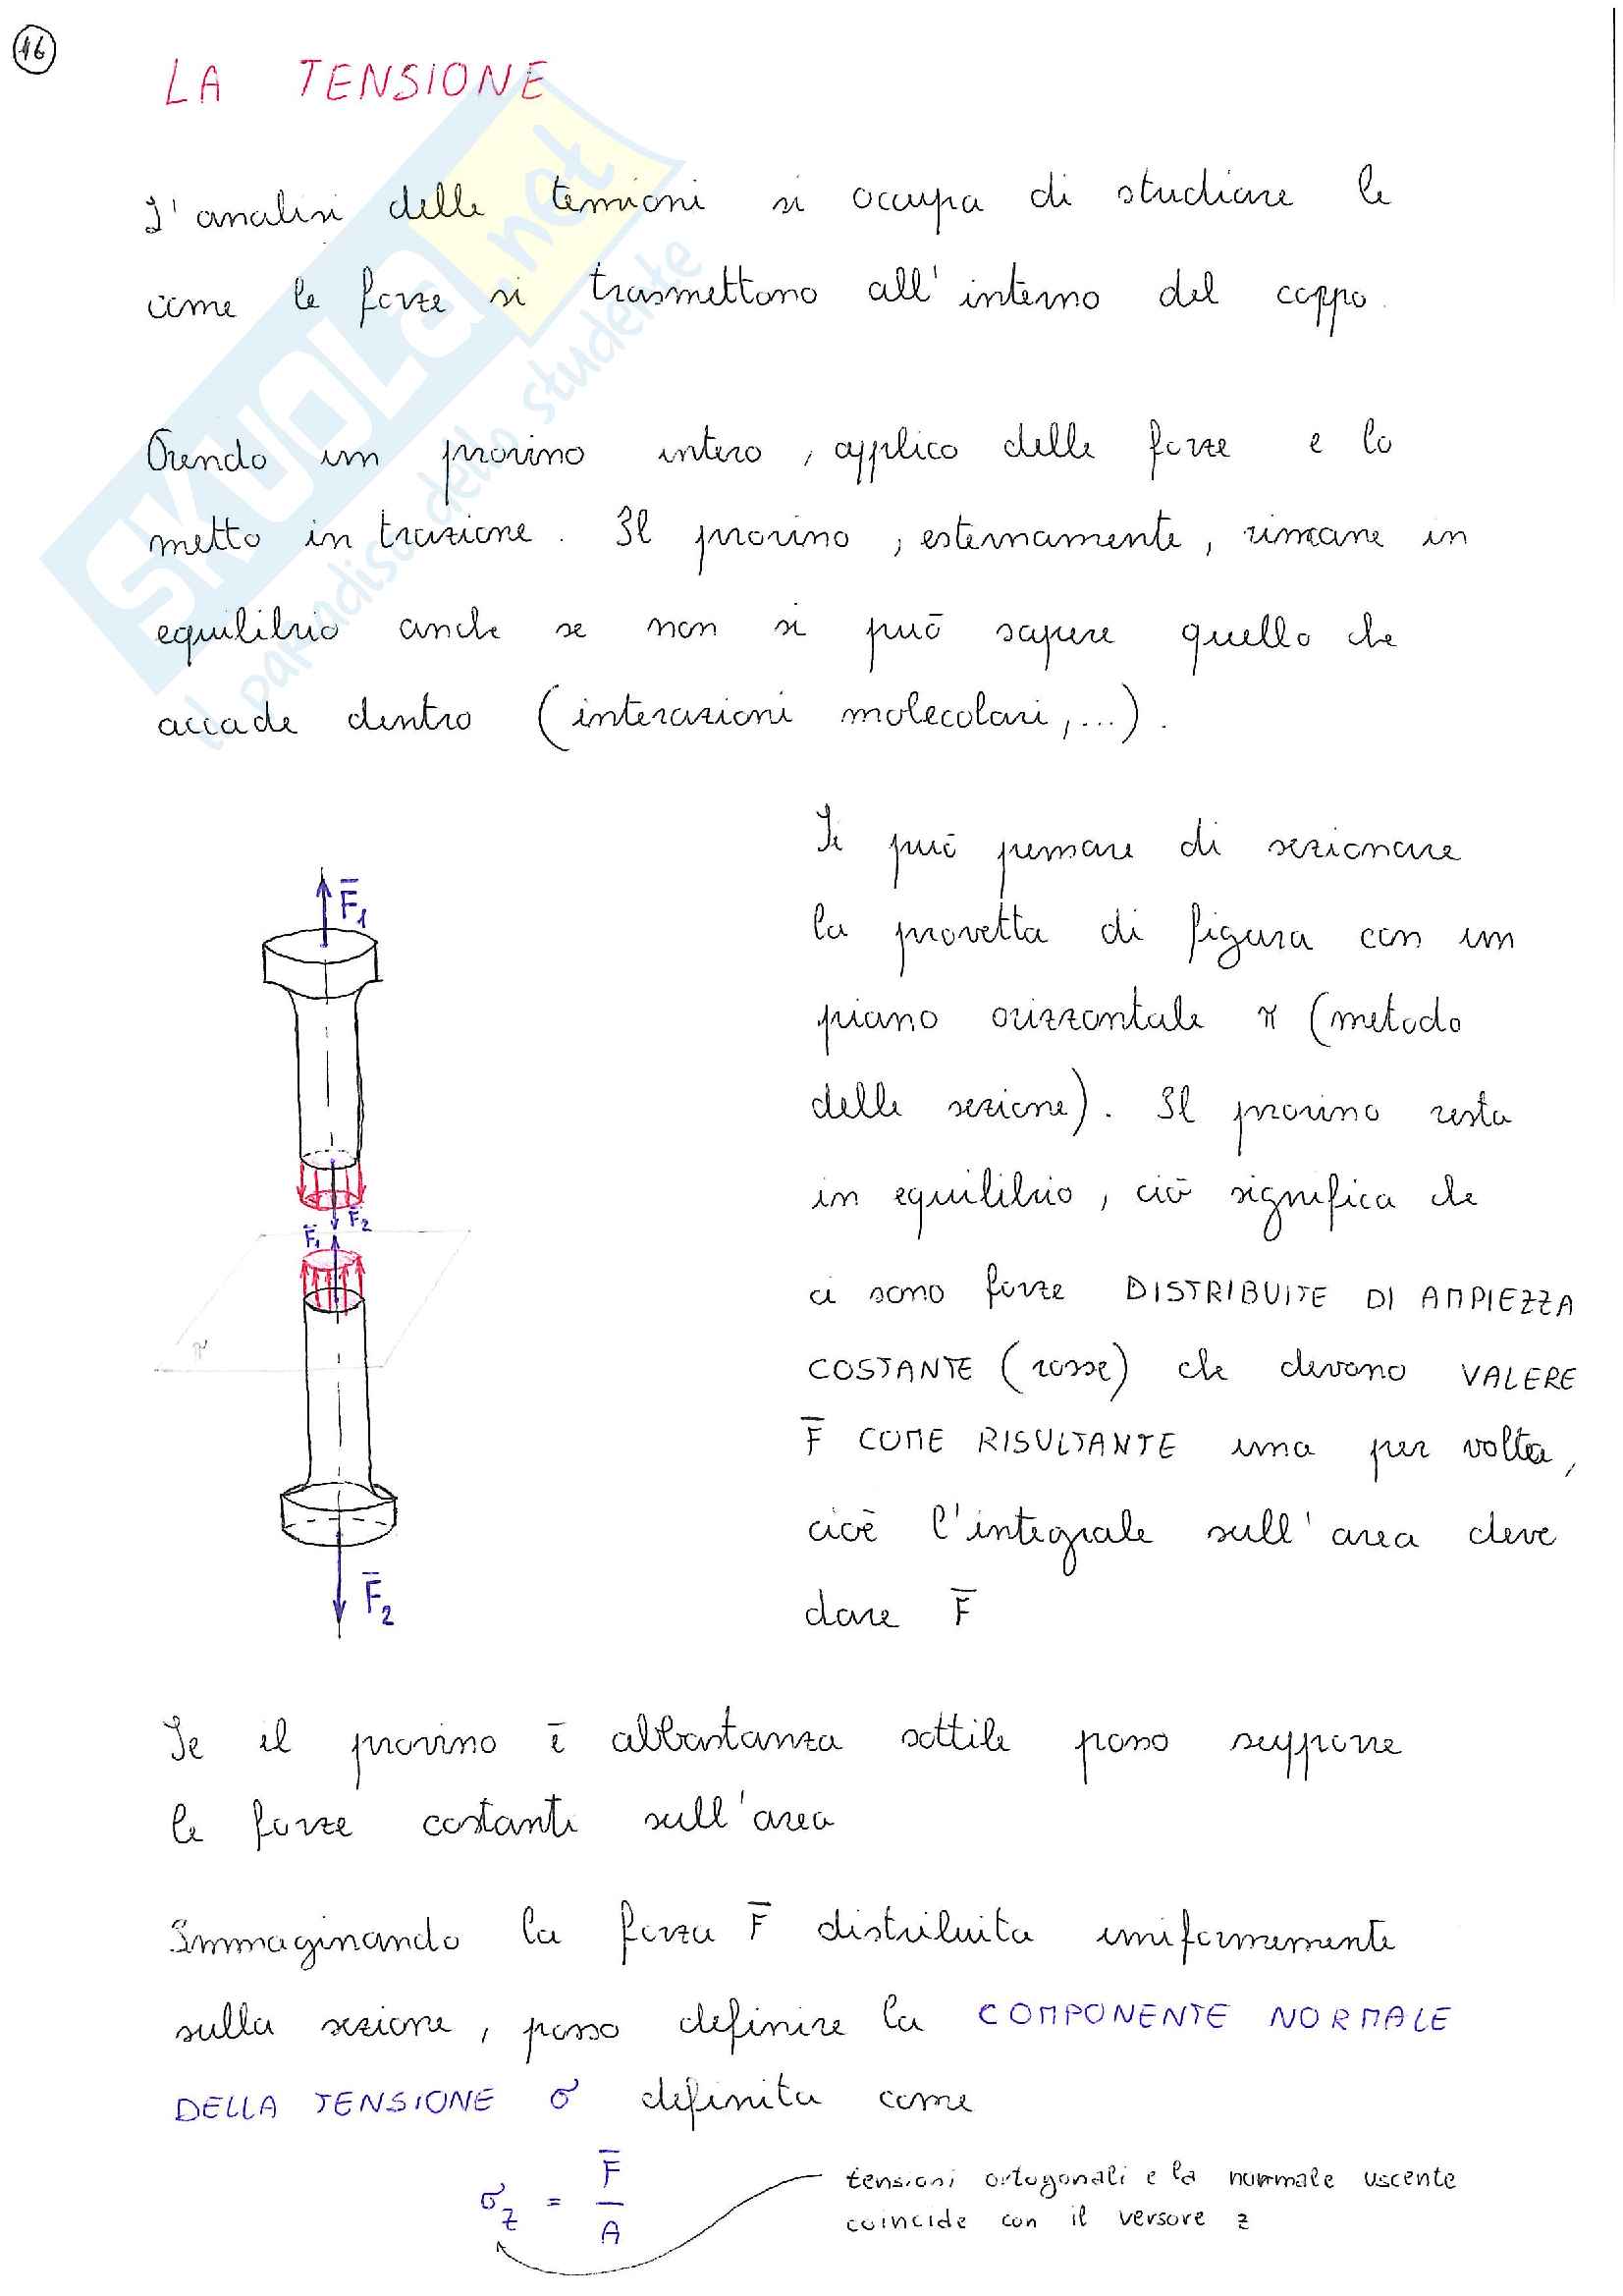 16
LA TENSIONE
L'analisi delle tensioni si occupa di studiare le
come le forze si trasmettono all'interno del corpo.
Prendo un provino intero, applico delle forze e lo
metto in trazione. Il provino, esternamente, rimane in
equilibrio anche se non si può sapere quello che
accade dentro (interazioni molecolari,...).
Si può pensare di sezionare
la provetta di figura con un
piano orizzontale π (metodo
delle sezione). Il provino resta
in equilibrio, ciò significa che
ci sono forze DISTRIBUITE DI AMPIEZZA
COSTANTE (rosse) che devono VALERE
F̄ COME RISULTANTE una per volta,
cioè l'integrale sull'area deve
dare F̄
F̄1
F̄2
F̄1
π
F̄2
Se il provino è abbastanza sottile posso supporre
le forze costanti sull'area
Immaginando la forza F̄ distribuita uniformemente
sulla sezione, posso definire la COMPONENTE NORMALE
DELLA TENSIONE σ definita come
σz = F̄ / A
tensioni ortogonali e la normale uscente
coincide con il versore z
SKUOLA.net
il paradiso dello studente